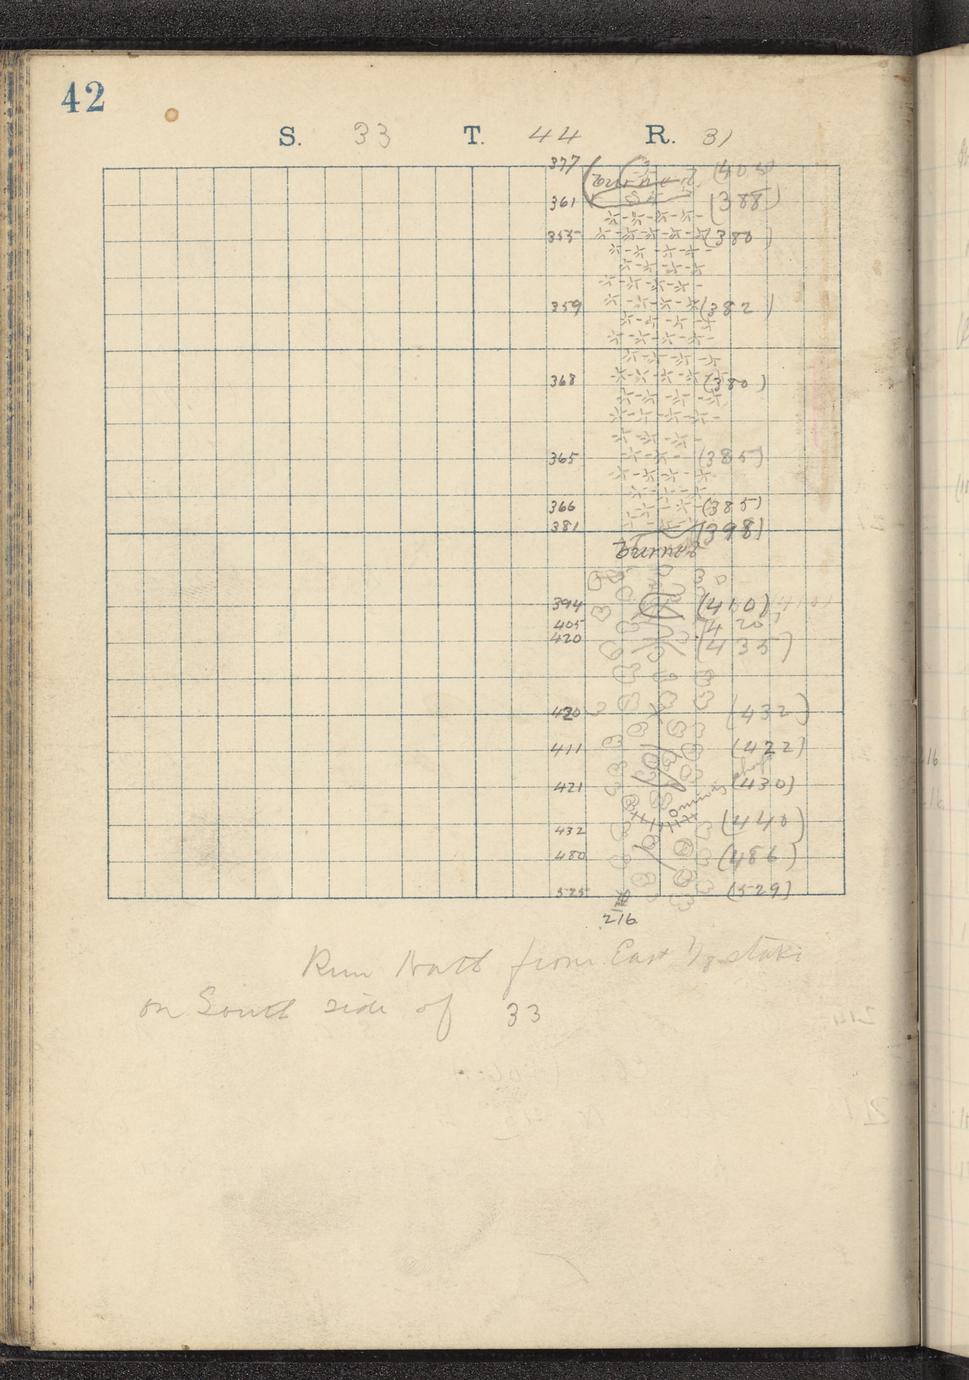 42
S. 33 T. 44 R. 31
377 burned
361 (388)
355 (380)
359 (382)
368 (380)
365 (385)
366 (385)
381 (398)
burned
394 (410)
405
420 (435)
420 (432)
411 (422)
421 (430)
432 (440)
480 (486)
525 (529)
216
Run North from East 1/8 stake
on South side of 33